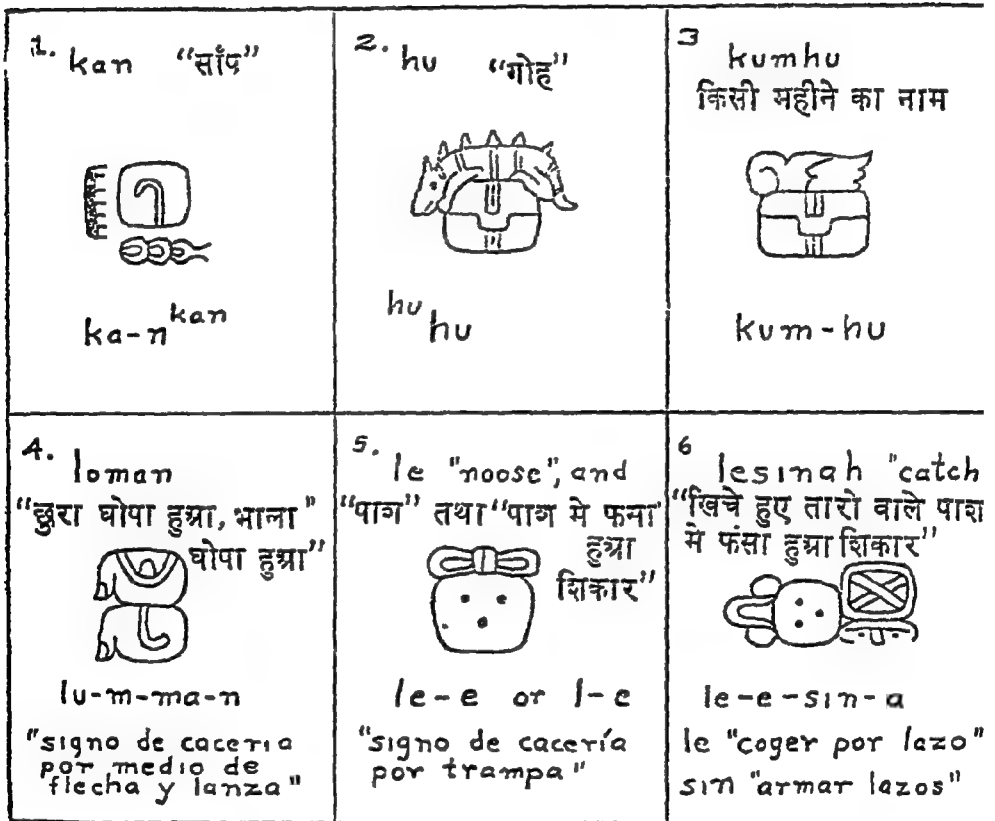 1. kan "साँप"
ka-n kan
2. hu "गोह"
hu hu
3 kumhu
किसी महीने का नाम
kum-hu
4. loman
"छुरा घोपा हुआ, भाला"
घोपा हुआ"
lu-m-ma-n
"signo de caceria
por medio de
flecha y lanza"
5. le "noose", and
"पाश" तथा "पाश मे फमा
हुआ
शिकार"
le-e or l-e
"signo de cacería
por trampa"
6 lesinah "catch
"खिचे हुए तारो वाले पाश
मे फंसा हुआ शिकार"
le-e-sin-a
le "coger por lazo"
sin "armar lazos"